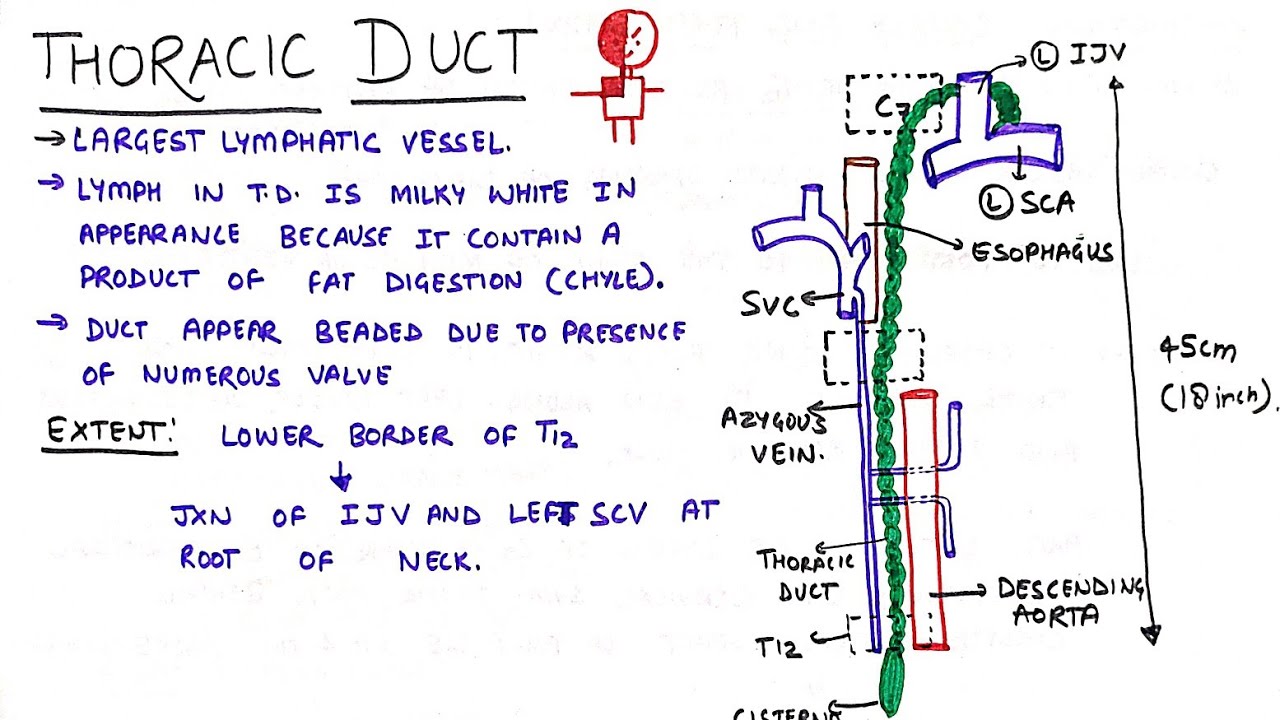 THORACIC DUCT
→ LARGEST LYMPHATIC VESSEL.
→ LYMPH IN T.D. IS MILKY WHITE IN
APPEARANCE BECAUSE IT CONTAIN A
PRODUCT OF FAT DIGESTION (CHYLE).
→ DUCT APPEAR BEADED DUE TO PRESENCE
OF NUMEROUS VALVE
EXTENT: LOWER BORDER OF T12
↓
JXN OF IJV AND LEFT SCV AT
ROOT OF NECK.
Ⓛ IJV
C7
Ⓛ SCA
ESOPHAGUS
SVC
45cm
(18 inch).
AZYGOUS
VEIN.
THORACIC
DUCT
DESCENDING
AORTA
T12
CISTERNA